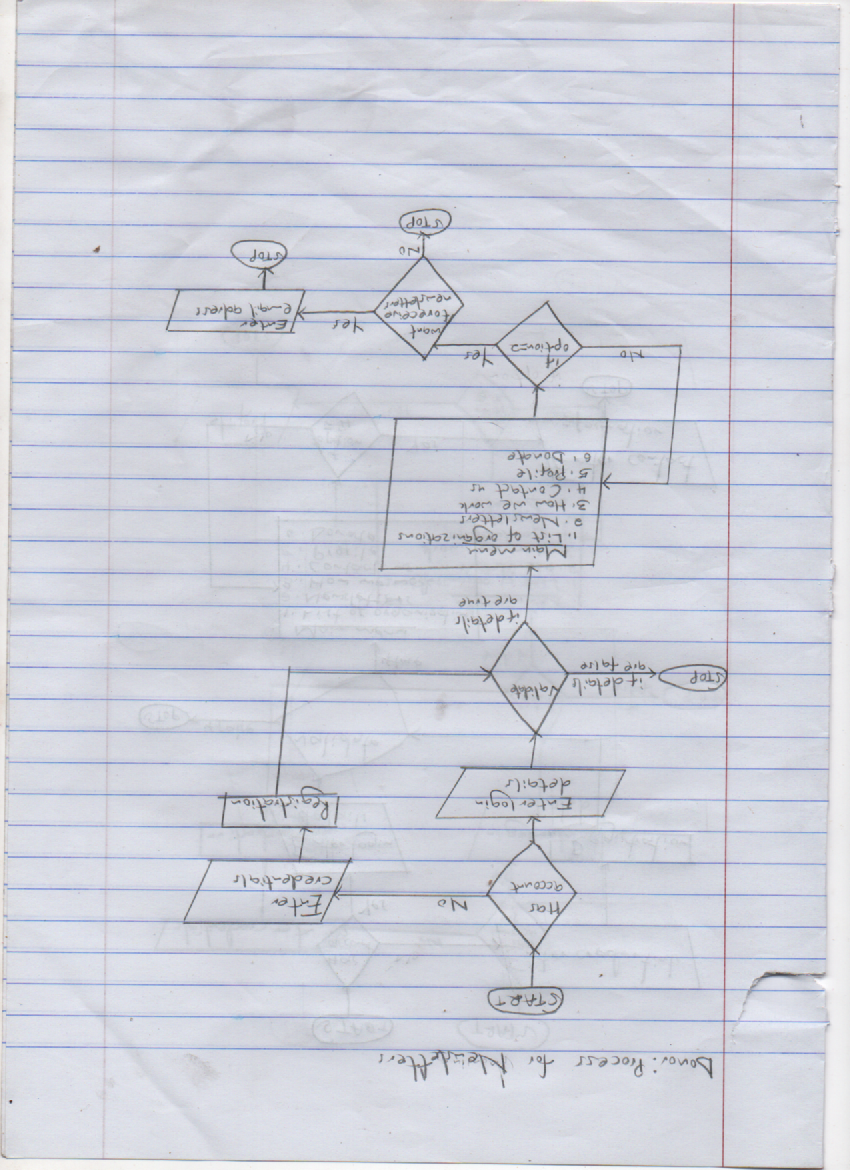 Donor: Process for Newsletters
START
Has
account
No
Enter
credentials
Registration
Enter login
details
Validate
if details
are false
STOP
if details
are true
Main menu
1. List of organizations
2. Newsletters
3. How we work
4. Contact us
5. Profile
6. Donate
if
option=2
No
Yes
want
to receive
newsletters
Yes
Enter
email adress
STOP
No
STOP